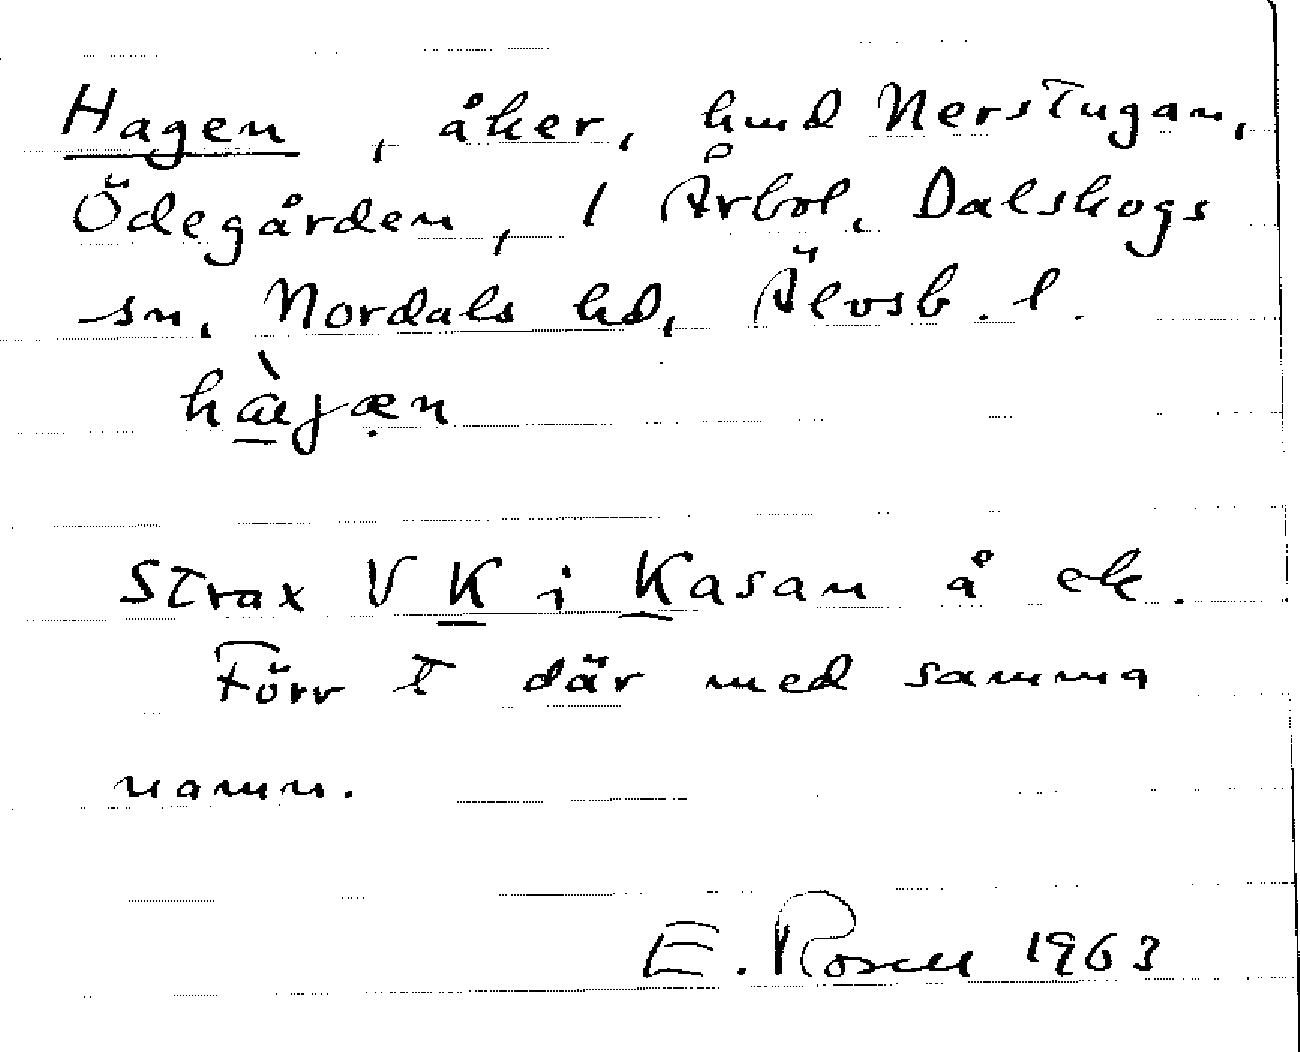 Hagen, åker, hmd Nerstugan,
Ödegården, 1 Årbol, Dalskogs
sn, Nordals hd, Älvsb. l.
Strax V K i Kasan å ek.
Förr t där med samma
namn.
E. Rosell 1963